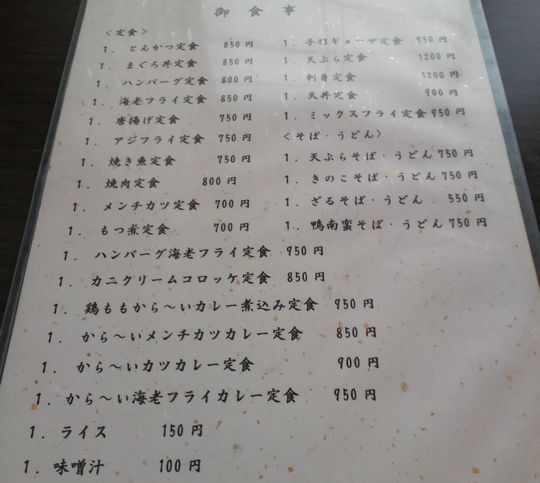 御食事
<定食>
1. とんかつ定食 850円
1. まぐろ丼定食 850円
1. ハンバーグ定食 800円
1. 海老フライ定食 850円
1. 唐揚げ定食 750円
1. アジフライ定食 750円
1. 焼き魚定食 750円
1. 焼肉定食 800円
1. メンチカツ定食 700円
1. もつ煮定食 700円
1. ハンバーグ海老フライ定食 950円
1. カニクリームコロッケ定食 850円
1. 鶏ももから〜いカレー煮込み定食 950円
1. から〜いメンチカツカレー定食 850円
1. から〜いカツカレー定食 900円
1. から〜い海老フライカレー定食 950円
1. ライス 150円
1. 味噌汁 100円
1. 手打ギョーザ定食 950円
1. 天ぷら定食 1200円
1. 刺身定食 1200円
1. 天丼定食 900円
1. ミックスフライ定食 950円
<そば・うどん>
1. 天ぷらそば・うどん 750円
1. きのこそば・うどん 750円
1. ざるそば・うどん 550円
1. 鴨南蛮そば・うどん 750円